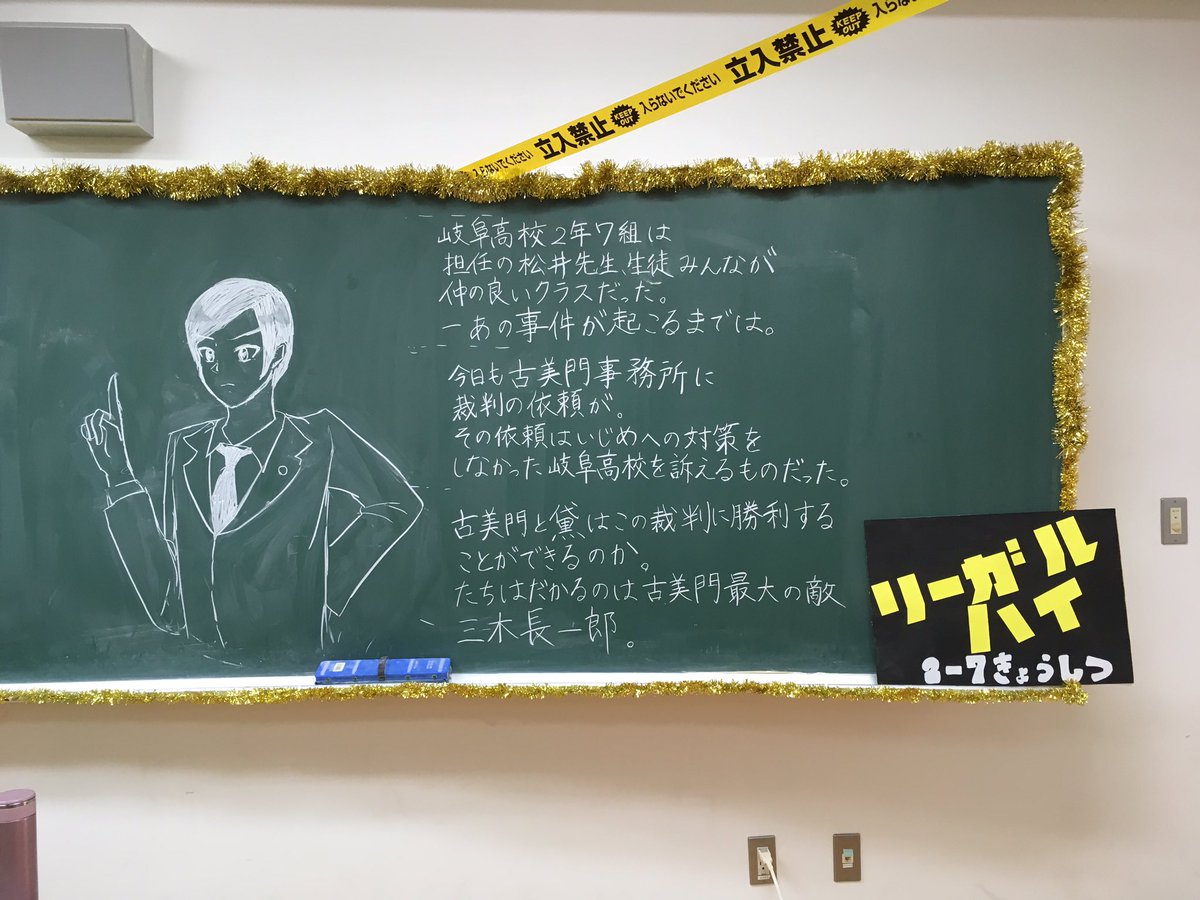 入らないでください 立入禁止 KEEP OUT 入らないでください 立入禁止 KEEP OUT 入らないでください
岐阜高校2年7組は
担任の松井先生、生徒みんなが
仲の良いクラスだった。
ーあの事件が起こるまでは。
今日も古美門事務所に
裁判の依頼が。
その依頼はいじめへの対策を
しなかった岐阜高校を訴えるものだった。
古美門と黛はこの裁判に勝利する
ことができるのか。
たちはだかるのは古美門最大の敵
三木長一郎。
リーガル
ハイ
3-7きょうしつ